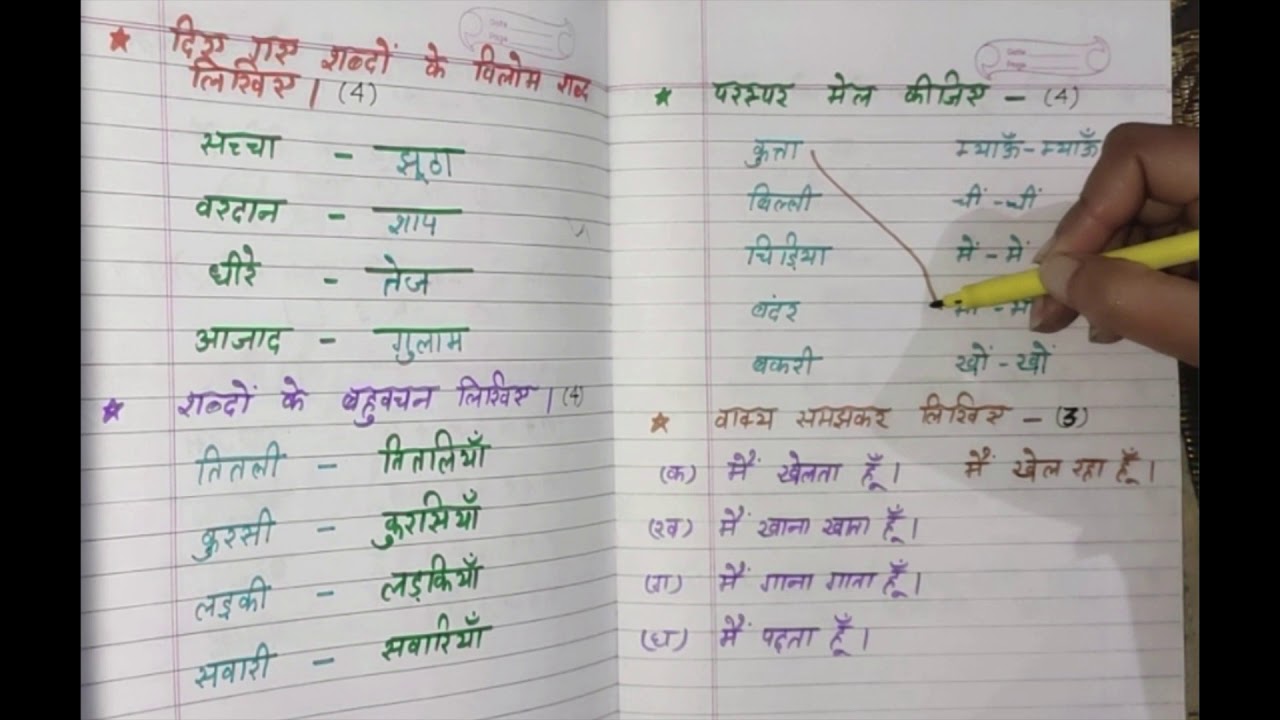 ★ दिए गए शब्दों के विलोम शब्द
लिखिए। (4)
सच्चा – झूठा
वरदान – शाप
धीरे – तेज
आजाद – गुलाम
★ शब्दों के बहुवचन लिखिए। (4)
तितली – तितलियाँ
कुरसी – कुरसियाँ
लड़की – लड़कियाँ
सवारी – सवारियाँ
Date
Page
★ परस्पर मेल कीजिए – (4)
कुत्ता म्याऊँ-म्याऊँ
बिल्ली चीं-चीं
चिड़िया में-में
बंदर
बकरी खों-खों
★ वाक्य समझकर लिखिए – (3)
(क) मैं खेलता हूँ। मैं खेल रहा हूँ।
(ख) मैं खाना खाता हूँ।
(ग) मैं गाना गाता हूँ।
(घ) मैं पढ़ता हूँ।
Date
Page